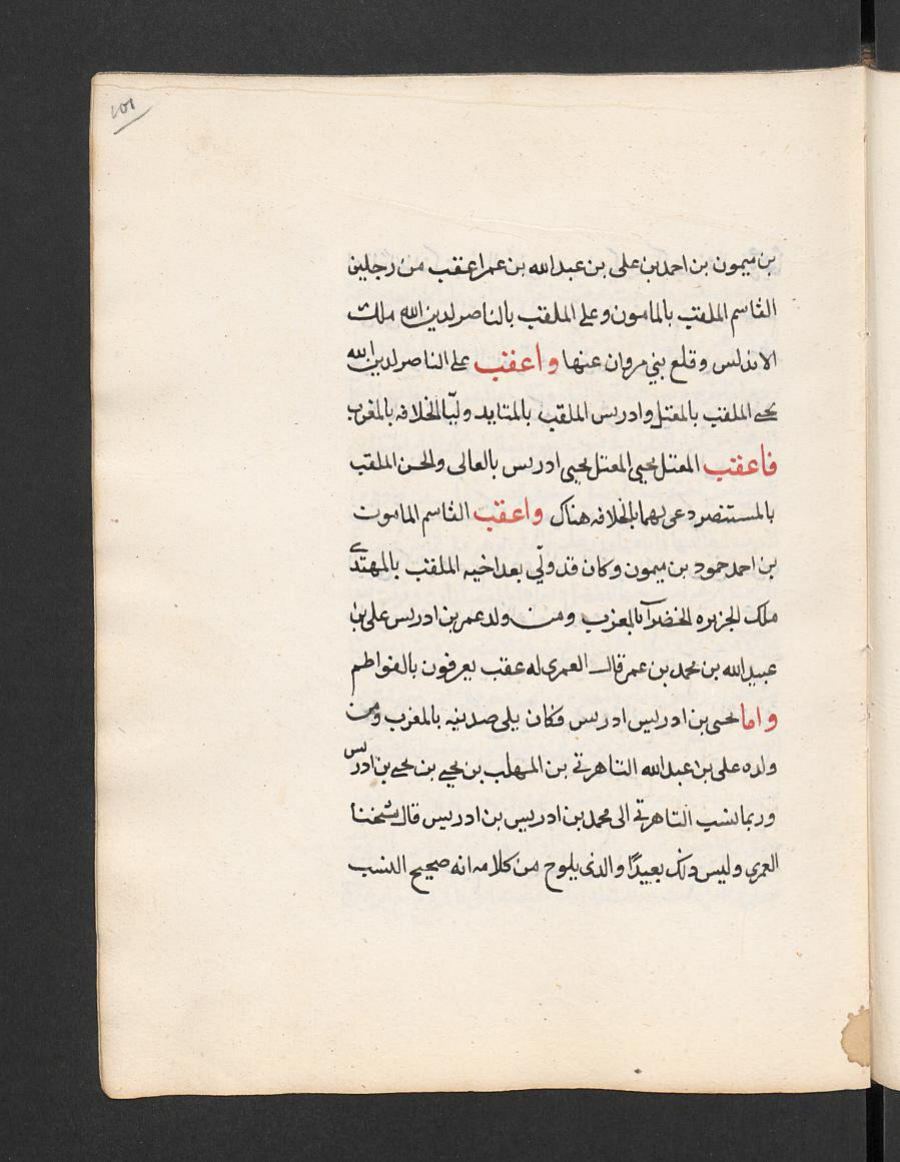 ١٥١
بن ميمون بن احمد بن على بن عبد الله بن عمر اعقب من رجلين
القاسم الملقب بالمامون وعلى الملقب بالناصر لدين الله ملك
الاندلس وقلع بني مروان عنها واعقب على الناصر لدين الله
يحيى الملقب بالمعتل وادريس الملقب بالمتايد وليا الخلافه بالمغرب
فاعقب المعتل يحيى المعتل يحيى ادريس بالعالى والحسن الملقب
بالمستنصر دعى لهما بالخلافه هناك واعقب القاسم المامون
بن احمد حمود بن ميمون وكان قد ولّي بعد اخيه الملقب بالمهتدى
ملك الجزيره الخضرا بالمغرب ومن ولد عمر بن ادريس على بن
عبيد الله بن محمد بن عمر قال العمرى له عقب يعرفون بالفواطم
واما يحيى بن ادريس ادريس فكان يلى صدينه بالمغرب ومن
ولده على بن عبد الله التاهرتي بن المهلب بن يحيى بن يحيى بن ادريس
وربما نسب التاهرتي الى محمد بن ادريس بن ادريس قال شيخنا
العمرى وليس ذلك بعيدًا والذى يلوح من كلامه انه صحيح النسب